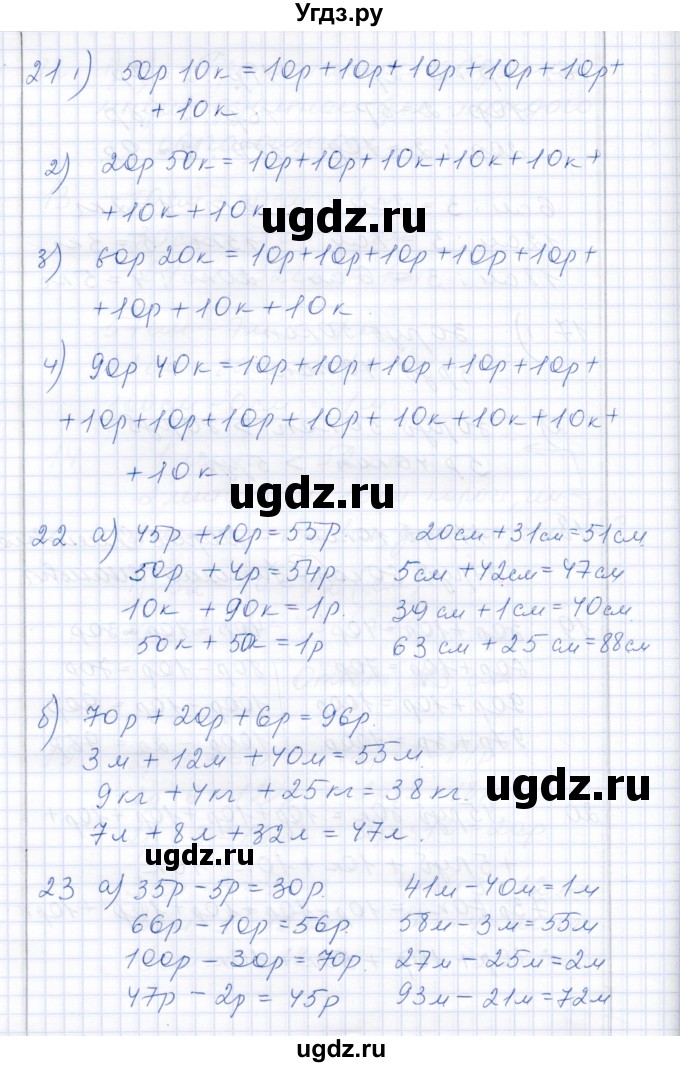 Угдз.ру
21 1) 50р 10к = 10р + 10р + 10р + 10р + 10р +
+ 10к.
2) 20р 50к = 10р + 10р + 10к + 10к + 10к +
+ 10к + 10к
ugdz.ru
3) 60р 20к = 10р + 10р + 10р + 10р + 10р +
+ 10р + 10к + 10к.
4) 90р 40к = 10р + 10р + 10р + 10р + 10р +
+ 10р + 10р + 10р + 10р + 10к + 10к + 10к +
+ 10к.
ugdz.ru
22. а) 45р + 10р = 55р. 20см + 31см = 51см.
50р + 4р = 54р. 5см + 42см = 47см
10к + 90к = 1р. 39см + 1см = 40см.
50к + 50к = 1р 63см + 25см = 88см
б) 70р + 20р + 6р = 96р.
3м + 12м + 40м = 55м.
9кг + 4кг + 25кг = 38кг.
ugdz.ru
7л + 8л + 32л = 47л.
ugdz.ru
23 а) 35р - 5р = 30р. 41м - 40м = 1м
66р - 10р = 56р. 58м - 3м = 55м
100р - 30р = 70р. 27м - 25м = 2м
47р - 2р = 45р 93м - 21м = 72м
ugdz.ru